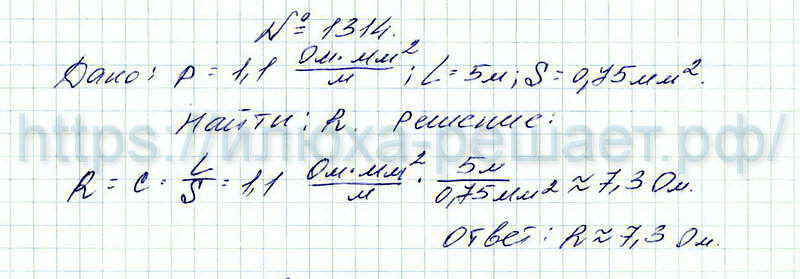 № 1314.
Дано: ρ = 1,1 Ом·мм²/м; L = 5м; S = 0,75мм².
Найти: R. Решение:
https://илюха-решает.рф/
R = c · L/S = 1,1 Ом·мм²/м · 5м/0,75мм² ≈ 7,3 Ом.
Ответ: R ≈ 7,3 Ом.